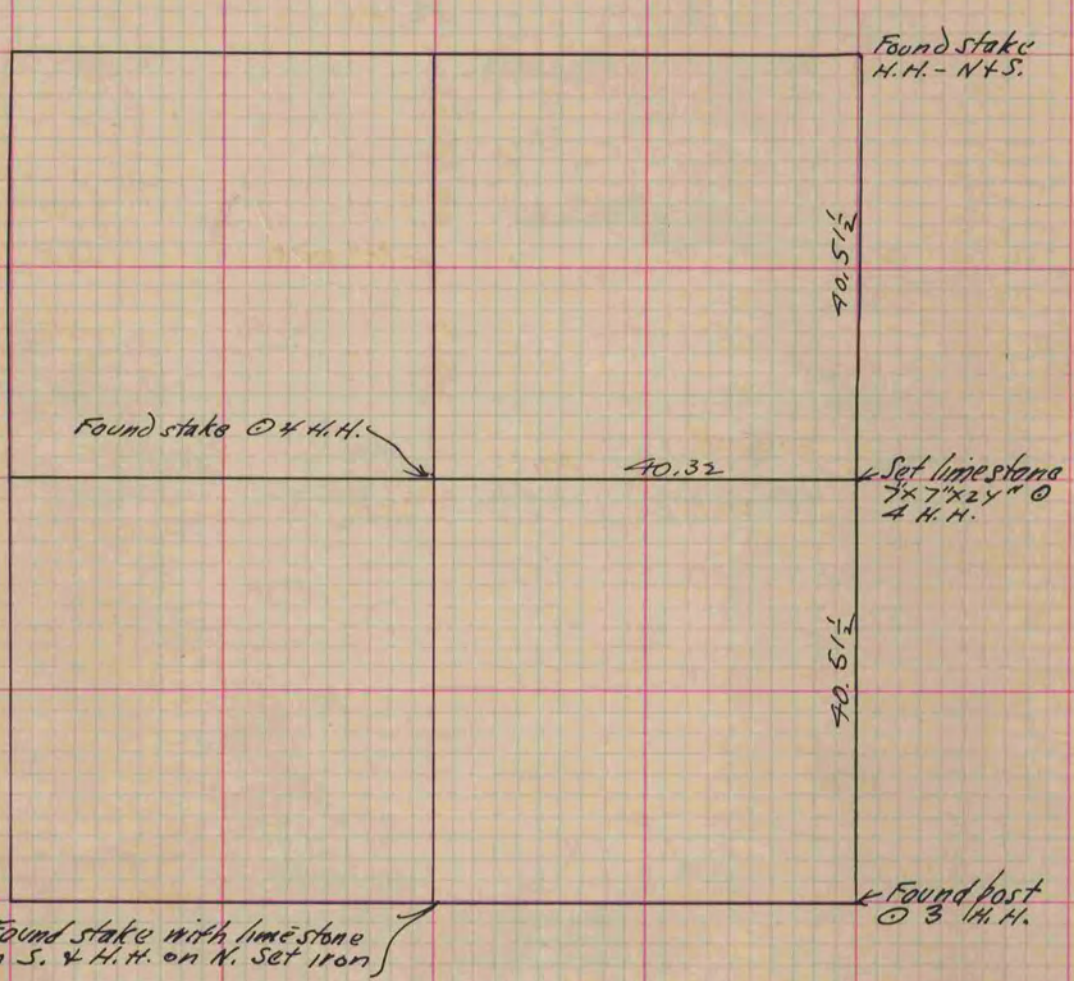 Found stake
H.H. - N & S.
40.51½
Found stake ⊙ 4 H.H.
40.32
Set limestone
7"x7"x24" ⊙
4 H.H.
40.51½
Found post
⊙ 3 H.H.
Found stake with limestone
S. & H.H. on N. Set iron